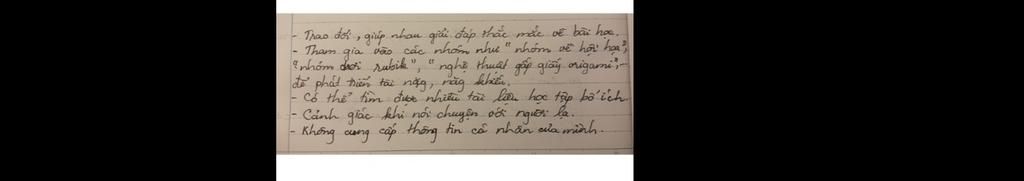 - Trao đổi, giúp nhau giải đáp thắc mắc về bài học.
- Tham gia vào các nhóm như "nhóm về hội họa",
"nhóm chơi rubik", "nghệ thuật gấp giấy origami",...
để phát triển tài năng, năng khiếu.
- Có thể tìm được nhiều tài liệu học tập bổ ích
- Cảnh giác khi nói chuyện với người lạ.
- Không cung cấp thông tin cá nhân của mình.